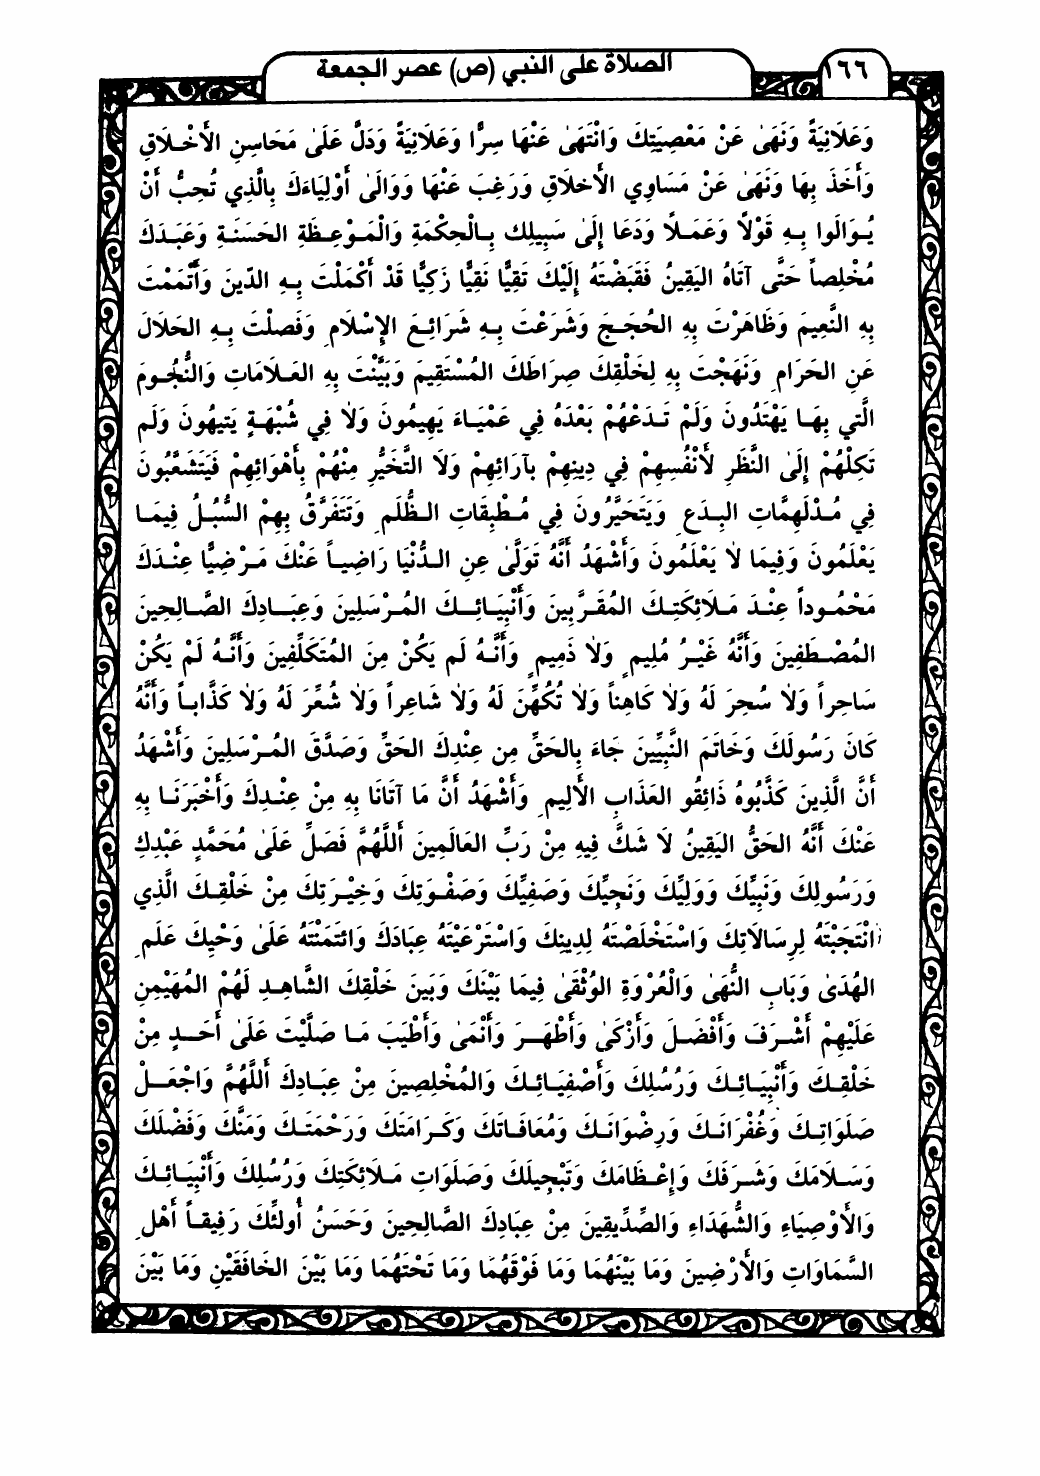 ١٦٦
الصلاة على النبي (ص) عصر الجمعة
وَعَلَانِيَةً وَنَهَىٰ عَنْ مَعْصِيَتِكَ وَانْتَهَىٰ عَنْهَا سِرًّا وَعَلَانِيَةً وَدَلَّ عَلَىٰ مَحَاسِنِ الأَخْلَاقِ
وَأَخَذَ بِهَا وَنَهَىٰ عَنْ مَسَاوِي الأَخلَاقِ وَرَغِبَ عَنْهَا وَوَالَىٰ أَوْلِيَاءَكَ بِالَّذِي تُحِبُّ أَنْ
يُوَالَوا بِهِ قَوْلاً وَعَمَلاً وَدَعَا إِلَىٰ سَبِيلِك بِالْحِكْمَةِ وَالْمَوْعِظَةِ الحَسَنَةِ وَعَبَدَكَ
مُخْلِصاً حَتَّى آتَاهُ اليَقِينُ فَقَبَضْتَهُ إِلَيْكَ تَقِيًّا نَقِيًّا زَكِيًّا قَدْ أَكْمَلْتَ بِهِ الدّينَ وَأَتْمَمْتَ
بِهِ النَّعِيمَ وَظَاهَرْتَ بِهِ الحُجَجَ وَشَرَعْتَ بِهِ شَرَائِعَ الإِسْلَامِ وَفَصلْتَ بِهِ الحَلَالَ
عَنِ الحَرَامِ وَنَهَجْتَ بِهِ لِخَلْقِكَ صِرَاطَكَ المُسْتَقِيمَ وَبَيَّنْتَ بِهِ العَلَامَاتِ وَالنُّجُومَ
الَّتي بِهَا يَهْتَدُونَ وَلَمْ تَدَعْهُمْ بَعْدَهُ فِي عَمْيَاءَ يَهِيمُونَ وَلاَ فِي شُبْهَةٍ يَتِيهُونَ وَلَم
تَكِلْهُمْ إِلَىٰ النَّظَرِ لأَنْفُسِهِمْ فِي دِينِهِمْ بآرَائِهِمْ وَلَا التَّخَيُّرِ مِنْهُمْ بِأَهْوَائِهِمْ فَيَتَشَعَّبُونَ
فِي مُدْلَهِمَّاتِ البِدَعِ وَيَتَحَيَّرُونَ فِي مُطْبِقَاتِ الظُّلَمِ وَتَتَفَرَّقُ بِهِمْ السُّبُلُ فِيمَا
يَعْلَمُونَ وَفِيمَا لاَ يَعْلَمُونَ وَأَشْهَدُ أَنَّهُ تَوَلَّىٰ عِنِ الدُّنْيَا رَاضِيـاً عَنْكَ مَرْضِيًّا عِنْدَكَ
مَحْمُوداً عِنْدَ مَلَائِكَتِكَ المُقَرَّبِينَ وَأَنْبِيَائِكَ المُرْسَلِينَ وَعِبَادِكَ الصَّالِحِينَ
المُصْطَفِينَ وَأَنَّهُ غَيْرُ مُلِيمٍ وَلاَ ذَمِيمٍ وَأَنَّهُ لَم يَكُنْ مِنَ المُتَكَلِّفِينَ وَأَنَّهُ لَمْ يَكُنْ
سَاحِراً وَلاَ سُحِرَ لَهُ وَلاَ كَاهِناً وَلاَ تُكُهِّنَ لَهُ وَلاَ شَاعِراً وَلاَ شُعِّرَ لَهُ وَلاَ كَذَّاباً وَأَنَّهُ
كَانَ رَسُولَكَ وَخَاتَمَ النَّبِيِّينَ جَاءَ بِالحَقِّ مِن عِنْدِكَ الحَقِّ وَصَدَّقَ المُرْسَلِينَ وَأَشْهَدُ
أَنَّ الَّذِينَ كَذَّبُوهُ ذَائِقُو العَذَابِ الأَلِيمِ وَأَشْهَدُ أَنَّ مَا آتَانَا بِهِ مِنْ عِنْدِكَ وَأَخْبَرَنَا بِهِ
عَنْكَ أَنَّهُ الحَقُّ اليَقِينُ لَا شَكَّ فِيهِ مِنْ رَبِّ العَالَمِينَ أَللَّهُمَّ فَصَلِّ عَلَىٰ مُحَمَّدٍ عَبْدِكِ
وَرَسُولِكَ وَنَبِيِّكَ وَوَلِيِّكَ وَنَجِيِّكَ وَصَفِيِّكَ وَصَفْوَتِكَ وَخِيْرَتِكَ مِنْ خَلْقِكَ الَّذِي
انْتَجَبْتَهُ لِرِسَالَاتِكَ وَاسْتَخْلَصْتَهُ لِدِينِكَ وَاسْتَرْعَيْتَهُ عِبَادَكَ وَائتَمَنْتَهُ عَلَىٰ وَحْيِكَ عَلَمِ
الهُدَىٰ وَبَابِ النُّهَىٰ وَالْعُرْوَةِ الوُثْقَىٰ فِيمَا بَيْنَكَ وَبَينَ خَلْقِكَ الشَّاهِدِ لَهُمْ المُهَيْمِنِ
عَلَيْهِمْ أَشْرَفَ وَأَفْضَلَ وَأَزْكَىٰ وَأَطْهَرَ وَأَنْمَىٰ وَأَطْيَبَ مَا صَلَّيْتَ عَلَىٰ أَحَدٍ مِنْ
خَلْقِكَ وَأَنْبِيَائِكَ وَرُسُلِكَ وَأَصْفِيَائِكَ وَالمُخْلِصِينَ مِنْ عِبَادِكَ أَللَّهُمَّ وَاجْعَلْ
صَلَوَاتِكَ وَغُفْرَانَكَ وَرِضْوَانَكَ وَمُعَافَاتَكَ وَكَرَامَتَكَ وَرَحْمَتَكَ وَمَنَّكَ وَفَضْلَكَ
وَسَلَامَكَ وَشَرَفَكَ وَإِعْظَامَكَ وَتَبْجِيلَكَ وَصَلَوَاتِ مَلَائِكَتِكَ وَرُسُلِكَ وَأَنْبِيَائِكَ
وَالأَوْصِيَاءِ وَالشُّهَدَاءِ وَالصِّدِّيقِينَ مِنْ عِبَادِكَ الصَّالِحِينَ وَحَسَنُ أُولئِّكَ رَفِيقاً أَهْلِ
السَّمَاوَاتِ وَالأَرْضِينَ وَمَا بَيْنَهُمَا وَمَا فَوْقَهُمَا وَمَا تَحْتَهُمَا وَمَا بَيْنَ الخَافَقَيْنِ وَمَا بَيْنَ